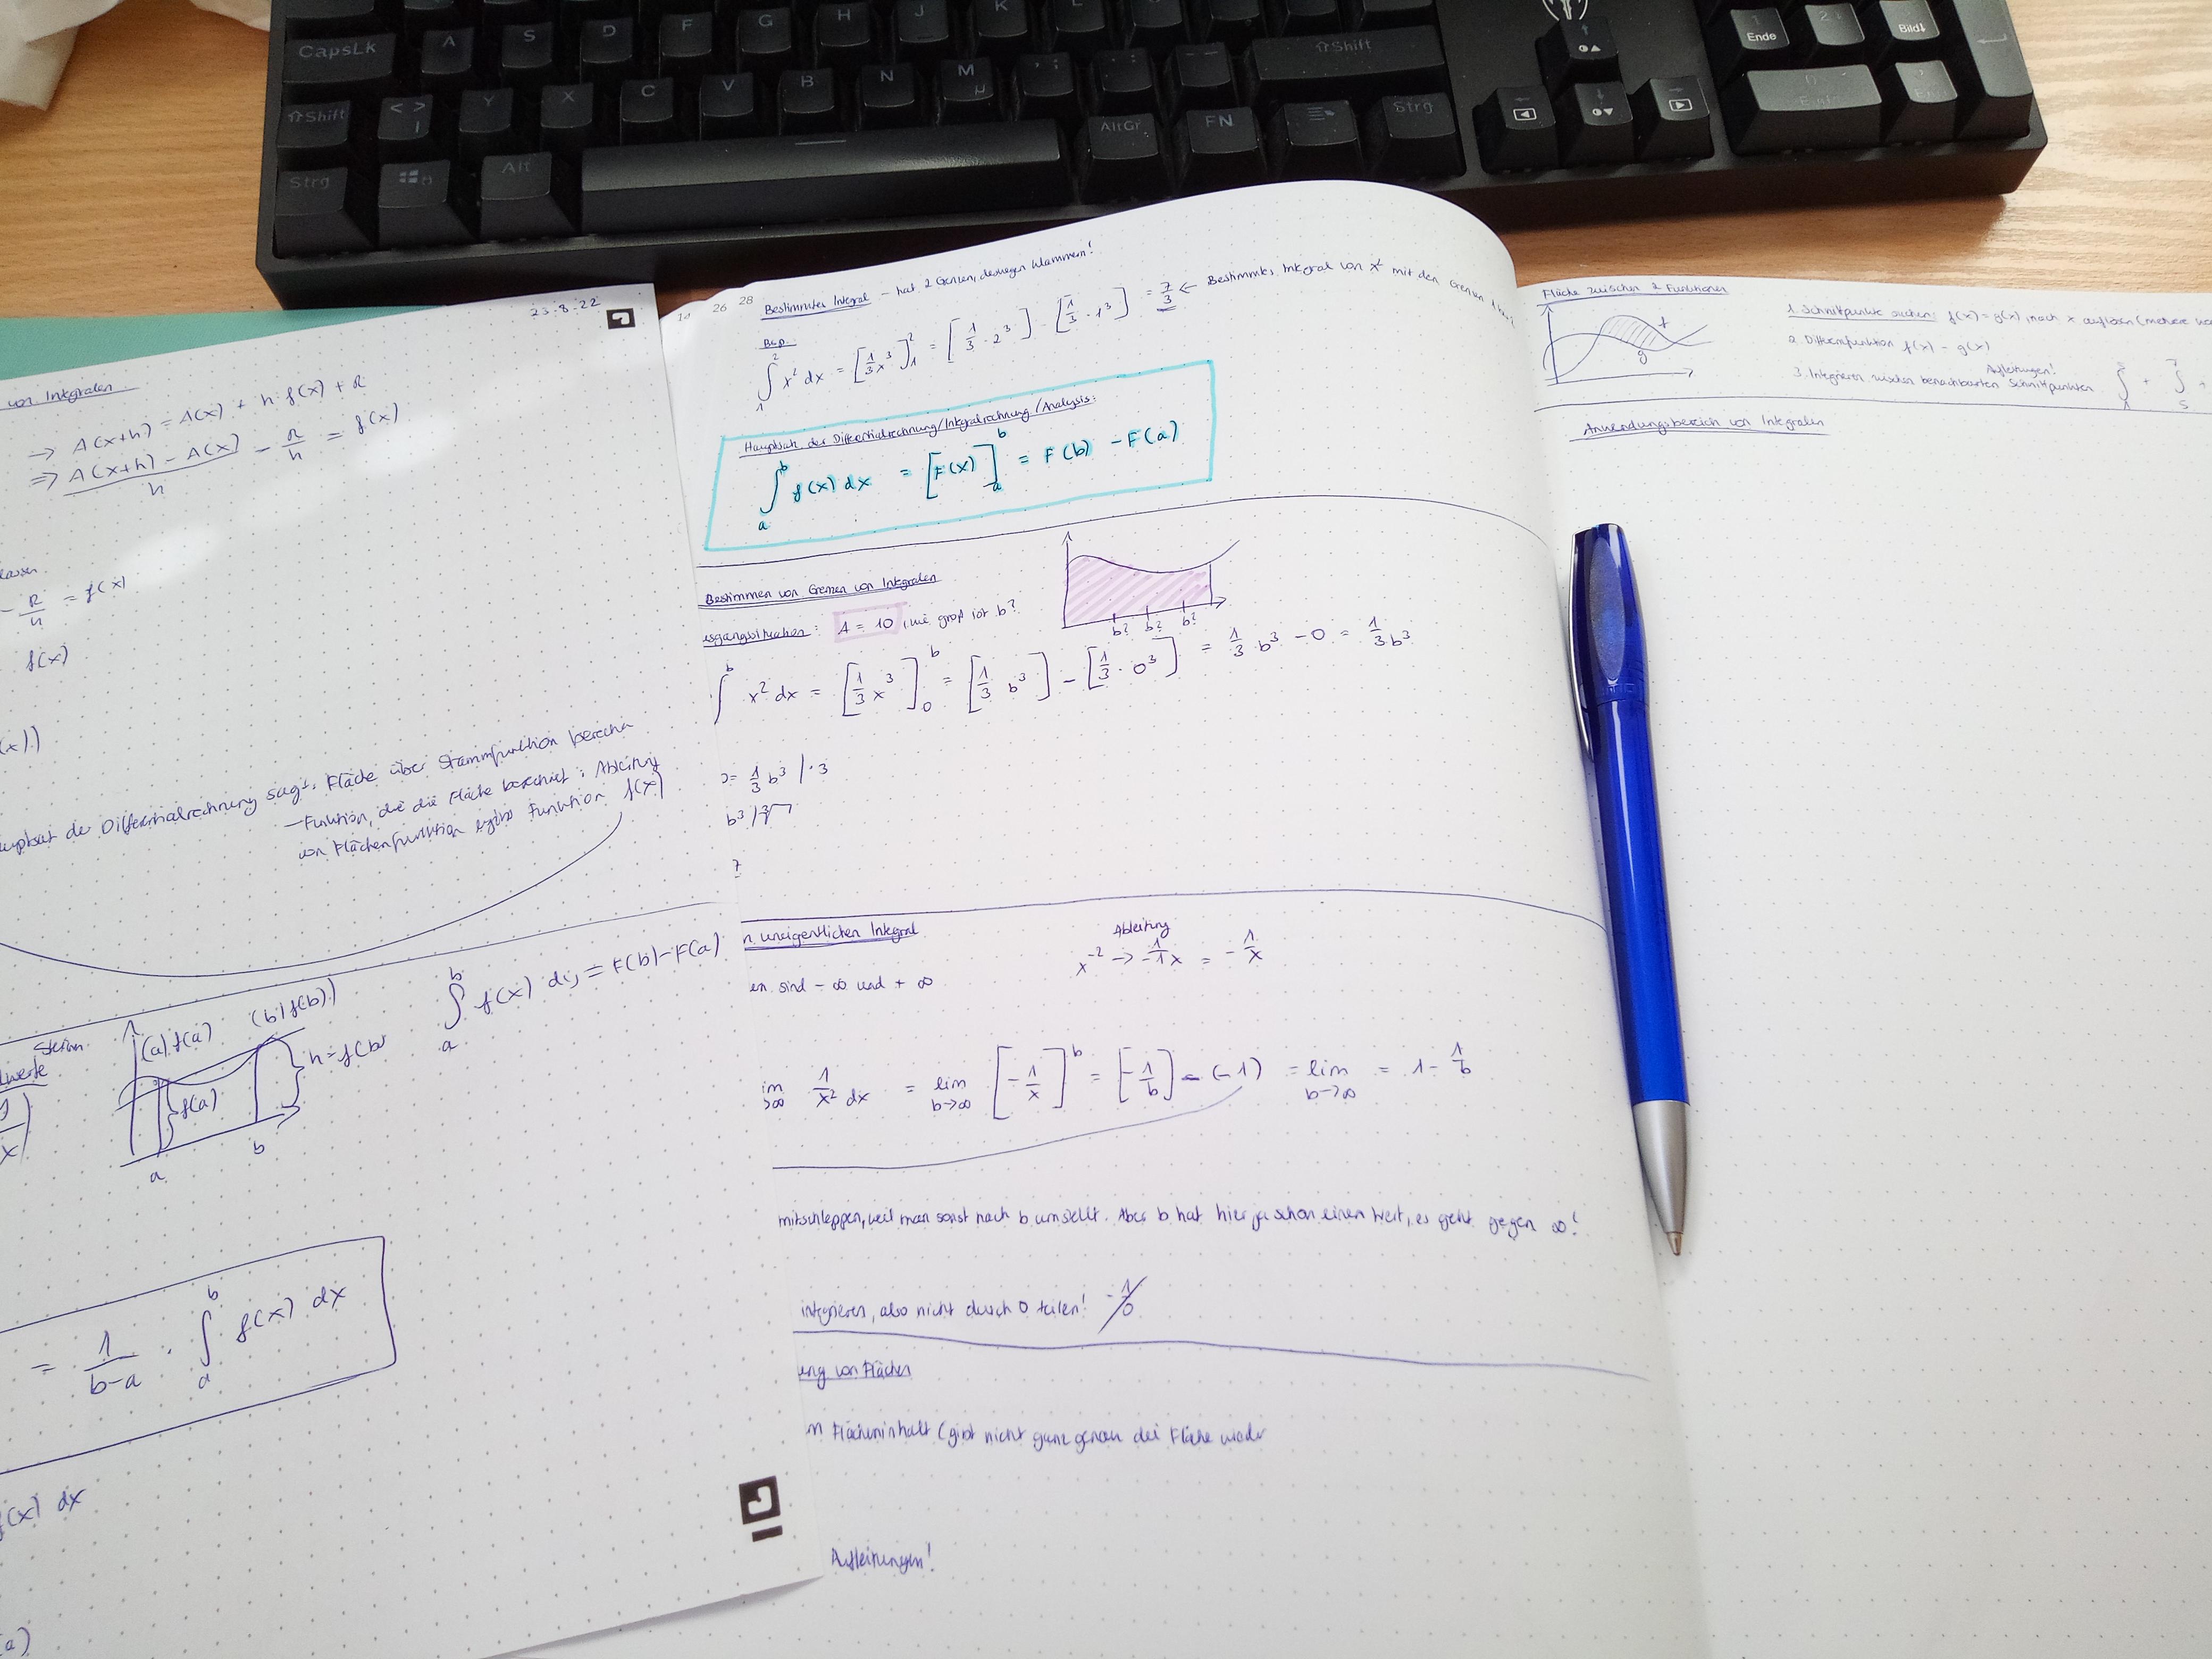 CapsLk A S D F G H J K L
⇧Shift < > | Y X C V B N M µ , ; . : - _ ⇧Shift
Strg Alt AltGr FN Strg
1 Ende 2 Bild↓
23.8.22
von Integralen
→ A(x+h) = A(x) + h·f(x) + R
⇒ A(x+h) - A(x) / h - R/h = f(x)
- R/h = f(x)
f(x)
(x))
Hauptsatz der Differentialrechnung sagt: Fläche über Stammfunktion berechn
- Funktion, die die Fläche berechnet: Ableitung
von Flächenfunktion ergibt Funktion f(x)
(a|f(a) (b|f(b))
h=f(b)
f(a)
a b
∫ₐᵇ f(x) dx = F(b)-F(a)
= 1/(b-a) · ∫ₐᵇ f(x) dx
f(x) dx
(a)
26 28
Bestimmtes Integral - hat 2 Grenzen, deswegen Klammern!
Bsp.
∫₁² x² dx = [1/3 x³]₁² = [1/3 · 2³] - [1/3 · 1³] = 7/3 ← Bestimmtes Integral von x² mit den Grenzen
Hauptsatz der Differentialrechnung/Integralrechnung/Analysis:
∫ₐᵇ f(x) dx = [F(x)]ₐᵇ = F(b) - F(a)
Bestimmen von Grenzen von Integralen
usgangssituation: A = 10, wie groß ist b?
b? b? b?
∫ᵇ x² dx = [1/3 x³]₀ᵇ = [1/3 b³] - [1/3 · 0³] = 1/3 b³ - 0 = 1/3 b³
0 = 1/3 b³ | · 3
b³ | ³√
n uneigentlichen Integral
Ableitung
x⁻² → 1/-1x = - 1/x
en sind - ∞ und + ∞
im >∞ 1/x² dx = lim b→∞ [- 1/x]ᵇ = [- 1/b] - (-1) = lim b→∞ = 1 - 1/b
mitschleppen, weil man sonst nach b umstellt. Aber b hat hier ja schon einen Wert, es geht gegen ∞!
integrieren, also nicht durch 0 teilen! - 1/0
ung von Flächen
m Flächeninhalt (gibt nicht ganz genau die Fläche wieder
Aufleitungen!
Fläche zwischen 2 Funktionen
f
g
1. Schnittpunkte suchen: f(x) = g(x), nach x auflösen (mehrere
2. Differenzfunktion f(x) - g(x)
Aufleitungen!
3. Integrieren zwischen benachbarten Schnittpunkten ∫ + ∫ +
Anwendungsbereich von Integralen